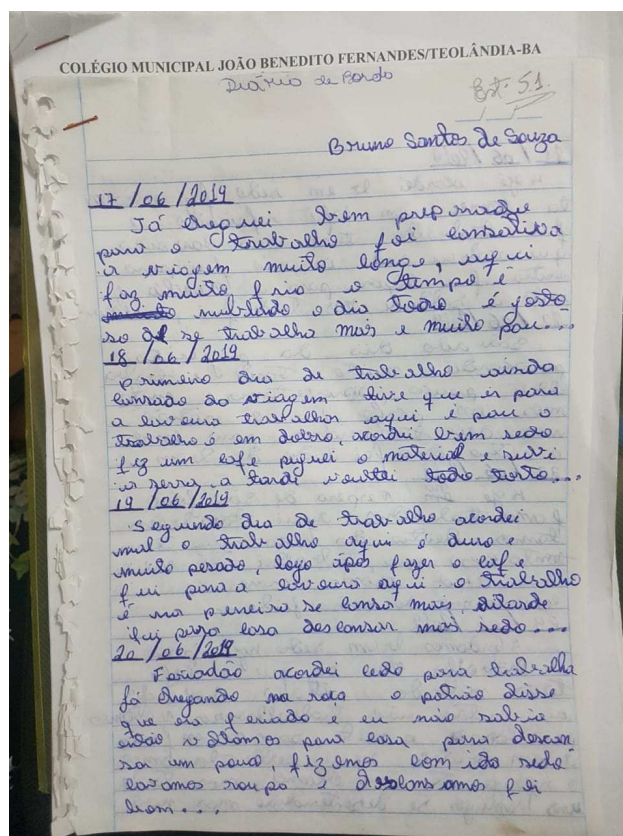 COLÉGIO MUNICIPAL JOÃO BENEDITO FERNANDES/TEOLÂNDIA-BA
Diário de Bordo
Est. 51
Bruno Santos de Souza
17/06/2019
Já cheguei bem preparado
para o trabalho foi cansativa
a viagem muito longe, aqui
faz muito frio o tempo é
nublado o dia todo é gosto-
so de se trabalha mais e muito pau...
18/06/2019
primeiro dia de trabalho ainda
cansado da viagem tive que ir para
a lavoura trabalhar aqui é pau o
trabalho é em dobro, acordei bem sedo
fiz um café peguei o material e subi
a serra, a tarde voltei todo torto...
19/06/2019
Segundo dia de trabalho acordei
mal o trabalho aqui é duro e
muito pesado, logo após fazer o café
fui para a lavoura aqui o trabalho
é na peneira se cansa mais, atarde
fui para casa descansar mais sedo...
20/06/2019
Feriadão acordei cedo para trabalha
já chegando na roça o patrão disse
que era feriado e eu não sabia
então voltamos para casa para descan-
sar um pouco, fizemos comida sedo
lavamos roupa e descansamos foi
bom...